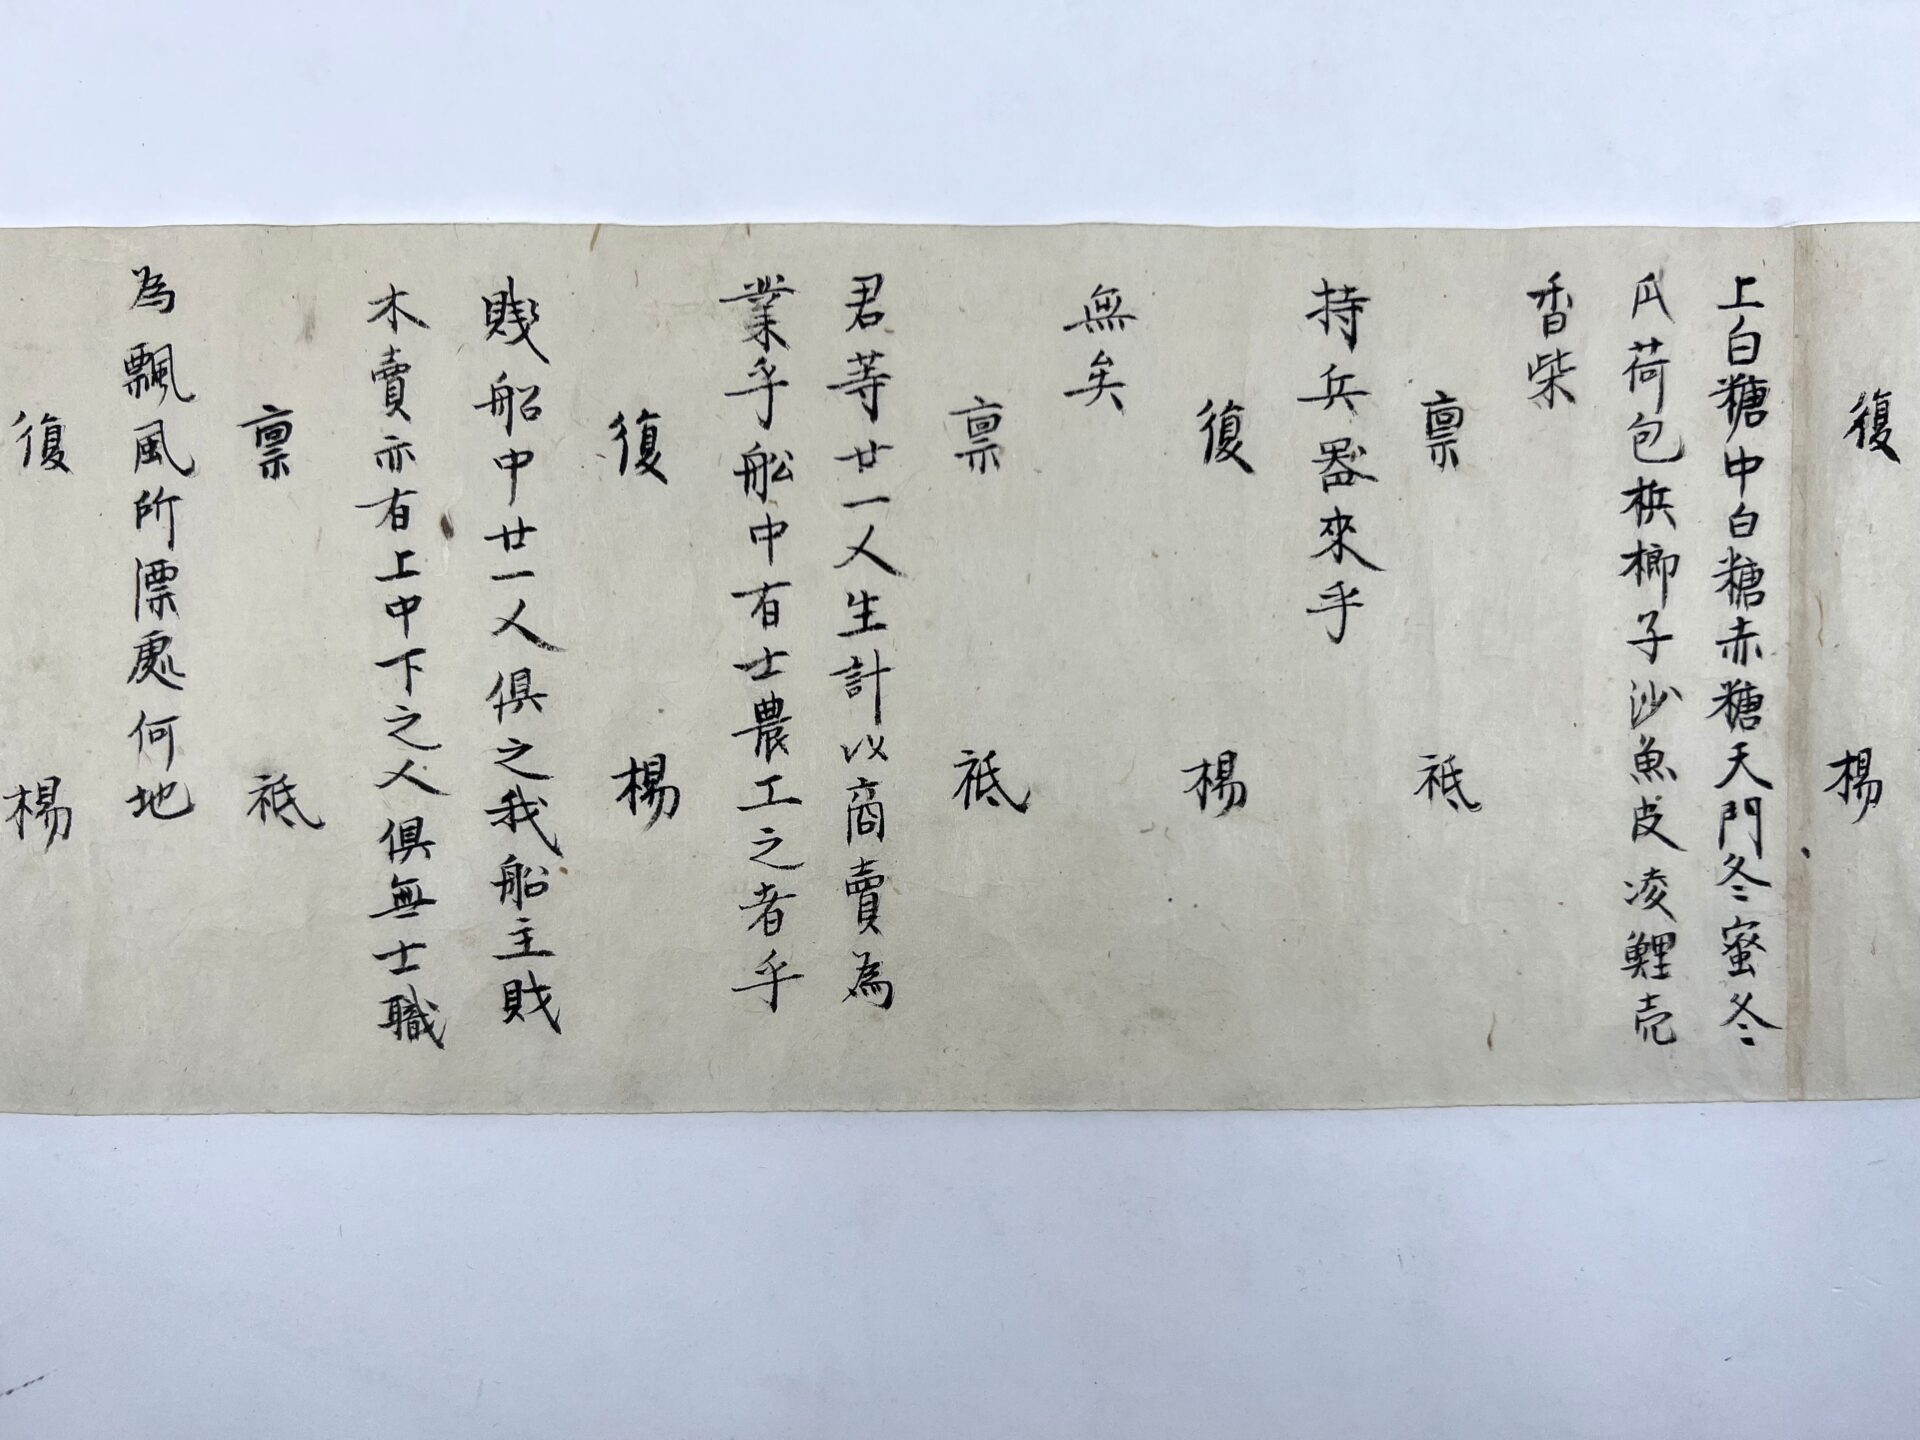 復 楊
上白糖中白糖赤糖天門冬蜜冬
瓜荷包檳榔子沙魚皮凌鯉売
香柴
稟 祗
持兵器來乎
復 楊
無矣
稟 祗
君等廿一人生計以商賣為
業乎舩中有士農工之者乎
復 楊
賤船中廿一人俱之我船主財
木賣亦有上中下之人俱無士職
稟 祗
為飄風所漂處何地
復 楊